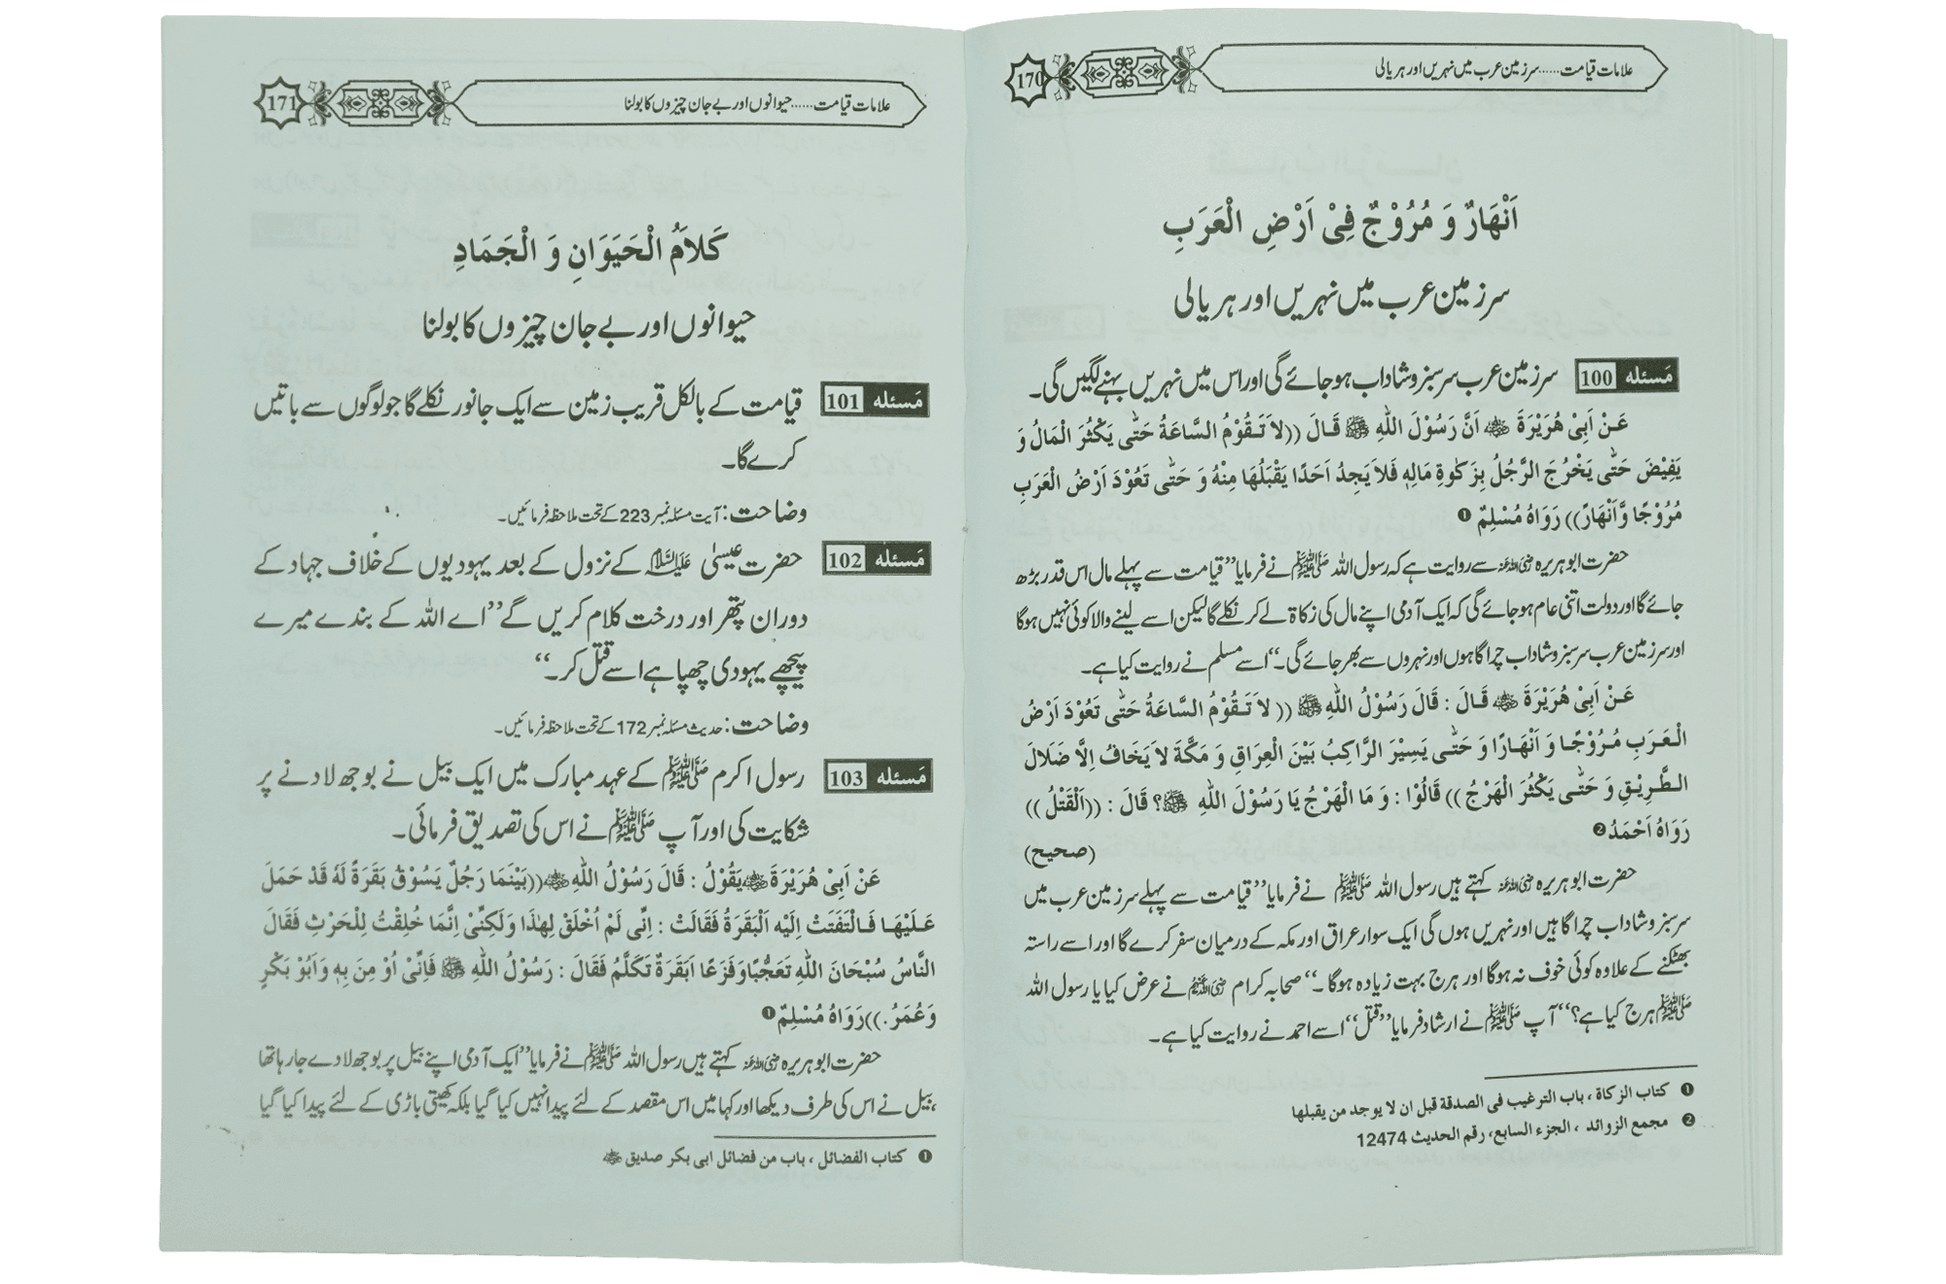 170 علامات قیامت......سرزمین عرب میں نہریں اور ہریالی
اَنْهَارٌ وَ مُرُوْجٌ فِیْ اَرْضِ الْعَرَبِ
سرزمین عرب میں نہریں اور ہریالی
مَسئله 100 سرزمین عرب سرسبز و شاداب ہوجائے گی اور اس میں نہریں بہنے لگیں گی۔
عَنْ اَبِیْ هُرَیْرَةَ ؓ اَنَّ رَسُوْلَ اللهِ ﷺ قَالَ ((لاَ تَقُوْمُ السَّاعَةُ حَتّٰی یَكْثُرَ الْمَالُ وَ
یَفِیْضَ حَتّٰی یَخْرُجَ الرَّجُلُ بِزَكٰوةِ مَالِهٖ فَلاَ یَجِدُ اَحَدًا یَقْبَلُهَا مِنْهُ وَ حَتّٰی تَعُوْدَ اَرْضُ الْعَرَبِ
مُرُوْجًا وَّاَنْهَارً)) رَوَاهُ مُسْلِمٌ ❶
حضرت ابوہریرہ رضی اللہ عنہ سے روایت ہے کہ رسول اللہ ﷺ نے فرمایا ”قیامت سے پہلے مال اس قدر بڑھ
جائے گا اور دولت اتنی عام ہوجائے گی کہ ایک آدمی اپنے مال کی زکاۃ لے کر نکلے گا لیکن اسے لینے والا کوئی نہیں ہوگا
اور سرزمین عرب سرسبز و شاداب چراگاہوں اور نہروں سے بھر جائے گی۔“ اسے مسلم نے روایت کیا ہے۔
عَنْ اَبِیْ هُرَیْرَةَ ؓ قَالَ : قَالَ رَسُوْلُ اللهِ ﷺ (( لاَ تَقُوْمُ السَّاعَةُ حَتّٰی تَعُوْدَ اَرْضُ
الْعَرَبِ مُرُوْجًا وَ اَنْهَارًا وَ حَتّٰی یَسِیْرَ الرَّاكِبُ بَیْنَ الْعِرَاقِ وَ مَكَّةَ لاَ یَخَافُ اِلَّا ضَلاَلَ
الطَّرِیْقِ وَ حَتّٰی یَكْثُرَ الْهَرْجُ )) قَالُوْا : وَ مَا الْهَرْجُ یَا رَسُوْلَ اللهِ ﷺ؟ قَالَ : ((اَلْقَتْلُ ))
رَوَاهُ اَحْمَدُ❷
(صحیح)
حضرت ابوہریرہ رضی اللہ عنہ کہتے ہیں رسول اللہ ﷺ نے فرمایا ”قیامت سے پہلے سرزمین عرب میں
سرسبز و شاداب چراگاہیں اور نہریں ہوں گی ایک سوار عراق اور مکہ کے درمیان سفر کرے گا اور اسے راستہ
بھٹکنے کے علاوہ کوئی خوف نہ ہوگا اور ہرج بہت زیادہ ہوگا۔“ صحابہ کرام رضی اللہ عنہم نے عرض کیا یا رسول اللہ
ﷺ ہرج کیا ہے؟“ آپ ﷺ نے ارشاد فرمایا ”قتل“ اسے احمد نے روایت کیا ہے۔
❶ كتاب الزكاة ، باب الترغيب فى الصدقة قبل ان لا يوجد من يقبلها
❷ مجمع الزوائد ، الجزء السابع، رقم الحديث 12474
171 علامات قیامت......حیوانوں اور بے جان چیزوں کا بولنا
كَلاَمُ الْحَیَوَانِ وَ الْجَمَادِ
حیوانوں اور بے جان چیزوں کا بولنا
مَسئله 101 قیامت کے بالکل قریب زمین سے ایک جانور نکلے گا جو لوگوں سے باتیں
کرے گا۔
وضاحت : آیت مسئلہ نمبر 223 کے تحت ملاحظہ فرمائیں۔
مَسئله 102 حضرت عیسیٰ علیہ السلام کے نزول کے بعد یہودیوں کے خلاف جہاد کے
دوران پتھر اور درخت کلام کریں گے ”اے اللہ کے بندے میرے
پیچھے یہودی چھپا ہے اسے قتل کر۔“
وضاحت : حدیث مسئلہ نمبر 172 کے تحت ملاحظہ فرمائیں۔
مَسئله 103 رسول اکرم ﷺ کے عہد مبارک میں ایک بیل نے بوجھ لادنے پر
شکایت کی اور آپ ﷺ نے اس کی تصدیق فرمائی۔
عَنْ اَبِیْ هُرَیْرَةَ ؓ یَقُوْلُ : قَالَ رَسُوْلُ اللهِ ﷺ ((بَیْنَمَا رَجُلٌ یَسُوْقُ بَقَرَةً لَهُ قَدْ حَمَلَ
عَلَیْهَا فَالْتَفَتَتْ اِلَیْهِ الْبَقَرَةُ فَقَالَتْ : اِنِّی لَمْ اُخْلَقْ لِهٰذَا وَلٰكِنِّیْ اِنَّمَا خُلِقْتُ لِلْحَرْثِ فَقَالَ
النَّاسُ سُبْحَانَ اللهِ تَعَجُّبًا وَفَزَعًا اَبَقَرَةٌ تَكَلَّمُ فَقَالَ : رَسُوْلُ اللهِ ﷺ فَاِنِّیْ اُوْ مِنَ بِهٖ وَاَبُوْ بَكْرٍ
وَعُمَرُ.))رَوَاهُ مُسْلِمٌ❶
حضرت ابوہریرہ رضی اللہ عنہ کہتے ہیں رسول اللہ ﷺ نے فرمایا ”ایک آدمی اپنے بیل پر بوجھ لادے جارہا تھا
،بیل نے اس کی طرف دیکھا اور کہا میں اس مقصد کے لئے پیدا نہیں کیا گیا بلکہ کھیتی باڑی کے لئے پیدا کیا گیا
❶ كتاب الفضائل ، باب من فضائل ابی بكر صديق ؓ